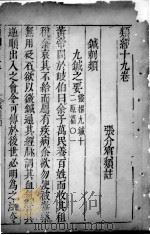 類經十九卷
張介賓類註
鍼刺類
九鍼之要靈樞九鍼十二原篇○一
黃帝問於岐伯曰余子萬民養百姓而收其租
稅余哀其不給而屬有疾病余欲勿使被毒藥
無用砭石欲以微鍼通其經脉調其血氣營其
逆順出入之會令可傳於後世必明爲之法令